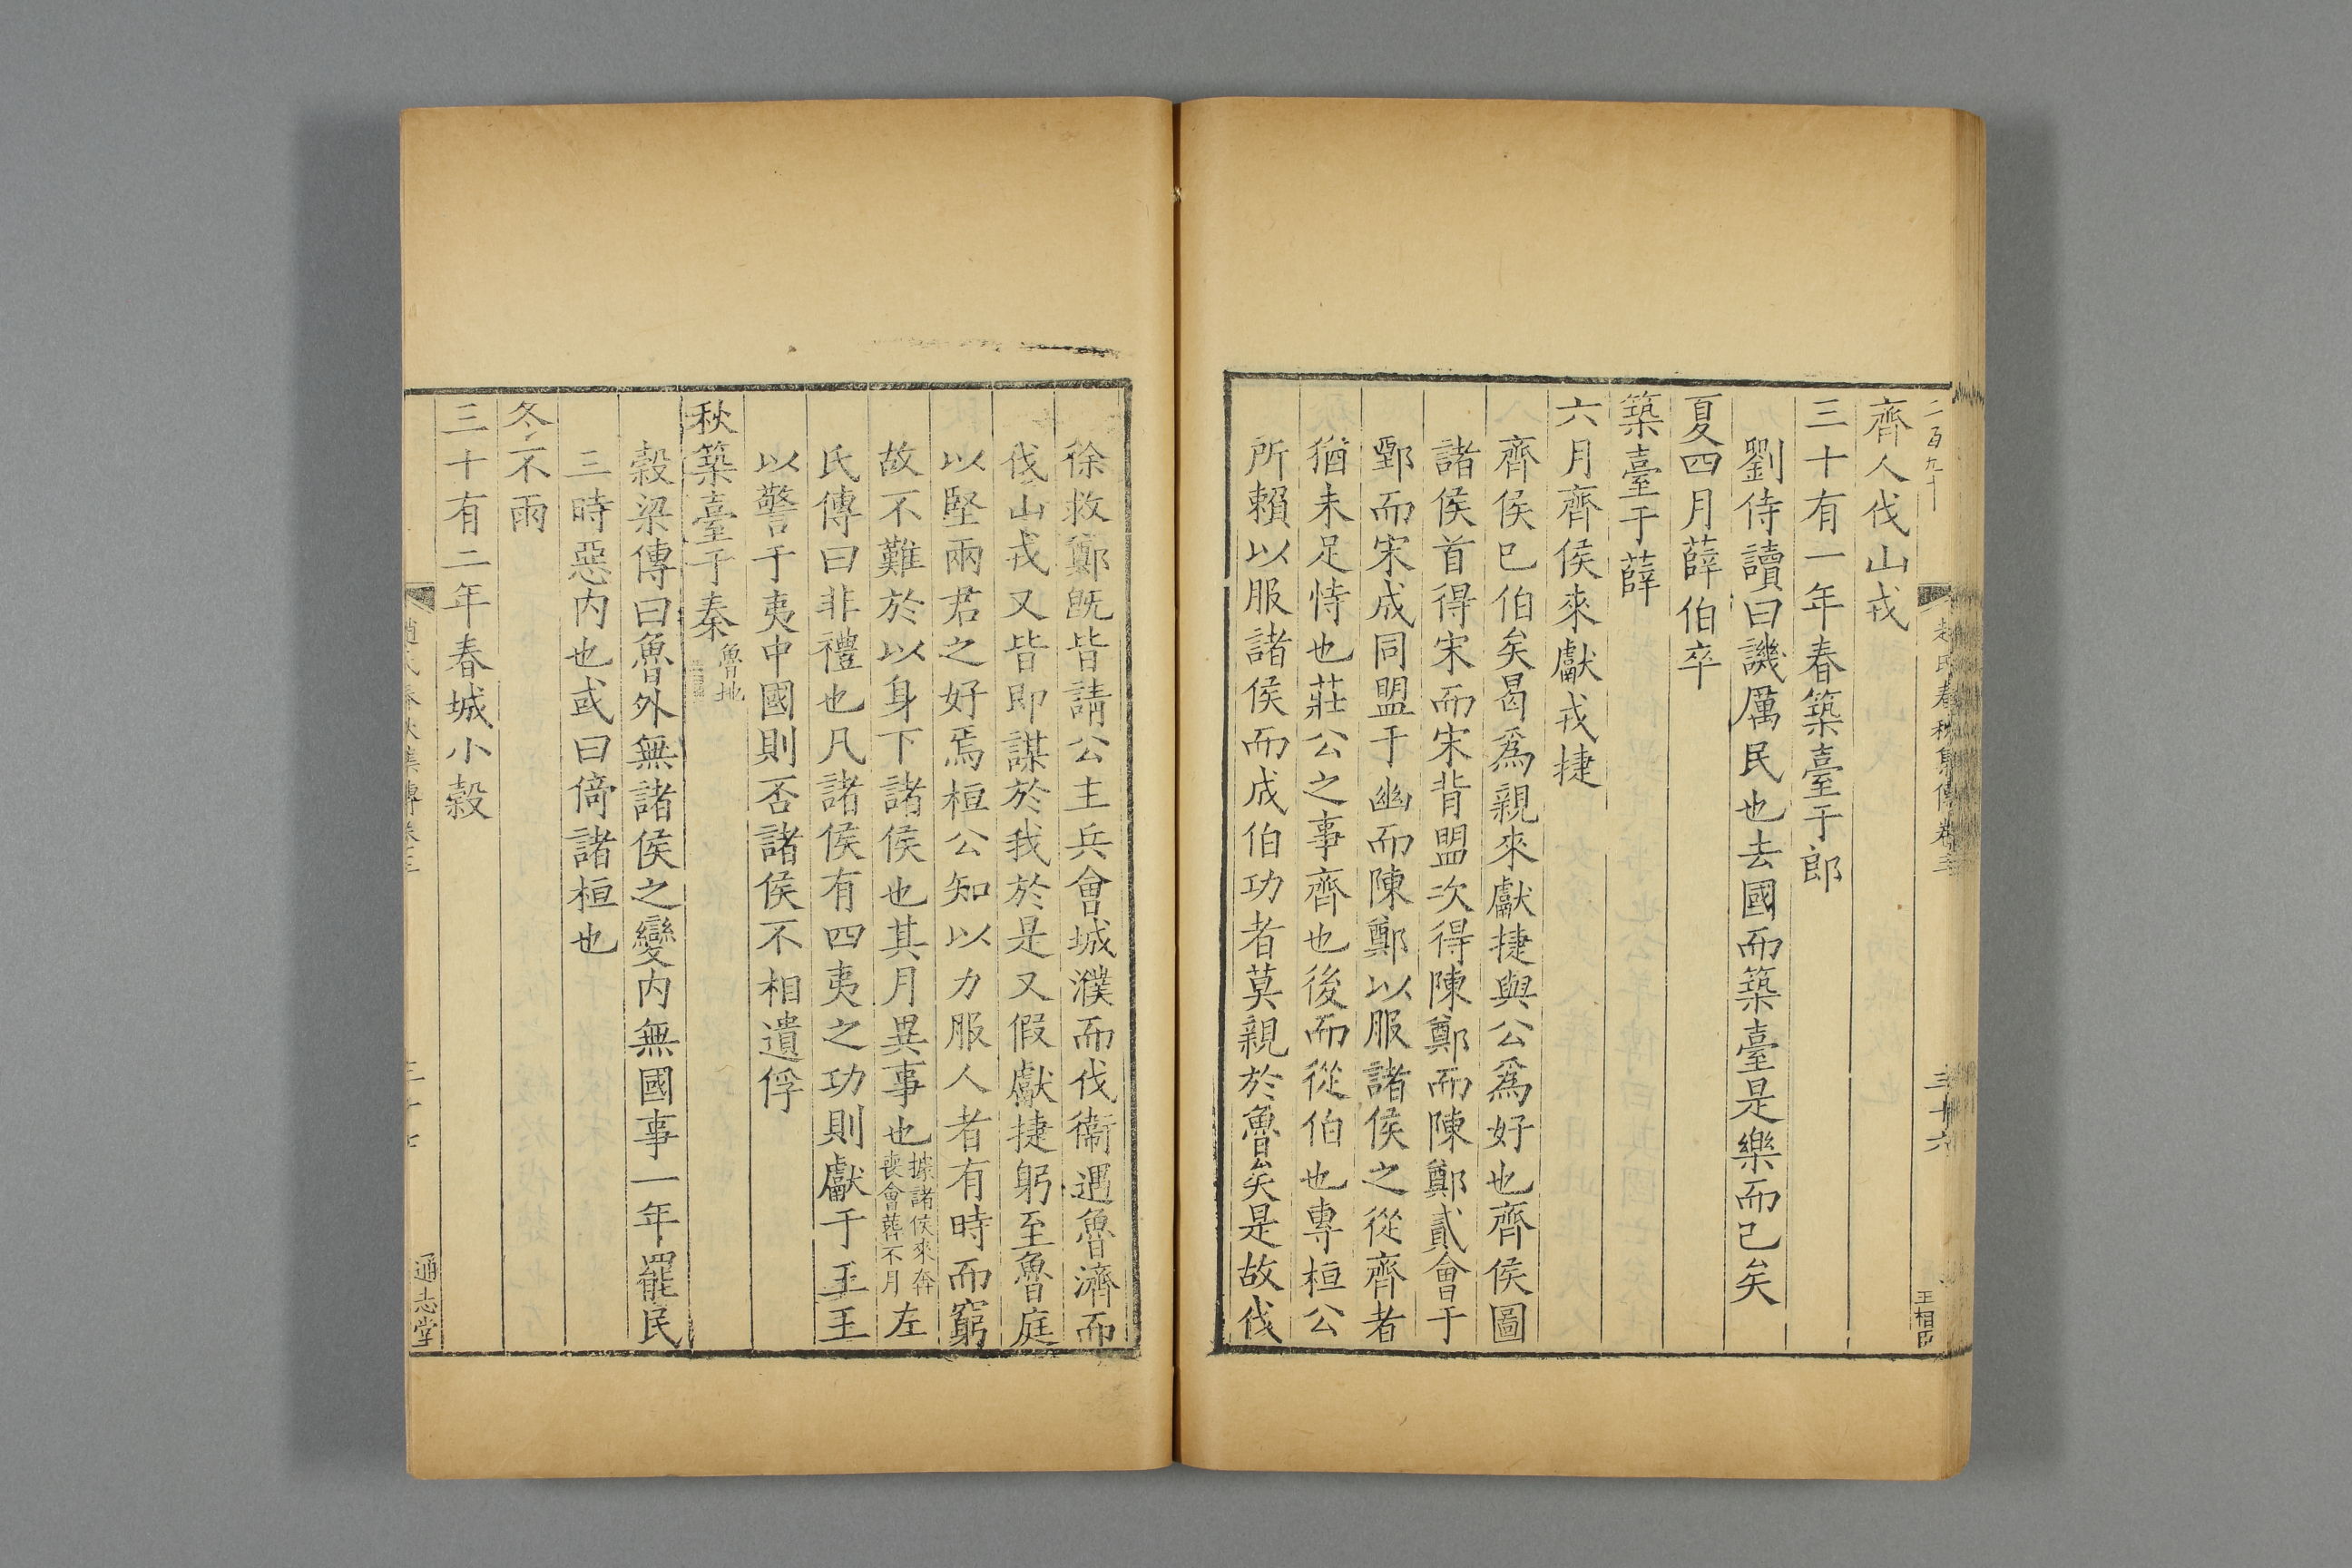 二百九十
趙氏春秋集傳卷三
三十六
王相臣
齊人伐山戎
三十有一年春築臺于郎
劉侍讀曰譏厲民也去國而築臺是樂而已矣
夏四月薛伯卒
築臺于薛
六月齊侯來獻戎捷
齊侯已伯矣曷爲親來獻捷與公爲好也齊侯圖
諸侯首得宋而宋背盟次得陳鄭而陳鄭貳會于
鄄而宋成同盟于幽而陳鄭以服諸侯之從齊者
猶未足恃也莊公之事齊也後而從伯也專桓公
所賴以服諸侯而成伯功者莫親於魯矣是故伐
徐救鄭旣皆請公主兵會城濮而伐衞遇魯濟而
伐山戎又皆即謀於我於是又假獻捷躬至魯庭
以堅兩君之好焉桓公知以力服人者有時而窮
故不難於以身下諸侯也其月異事也據諸侯來奔喪會葬不月左
氏傳曰非禮也凡諸侯有四夷之功則獻于王王
以警于夷中國則否諸侯不相遺俘
秋築臺于秦魯地
穀梁傳曰魯外無諸侯之變內無國事一年罷民
三時惡內也或曰倚諸桓也
冬不雨
三十有二年春城小穀
趙氏春秋集傳卷三
三十七
通志堂